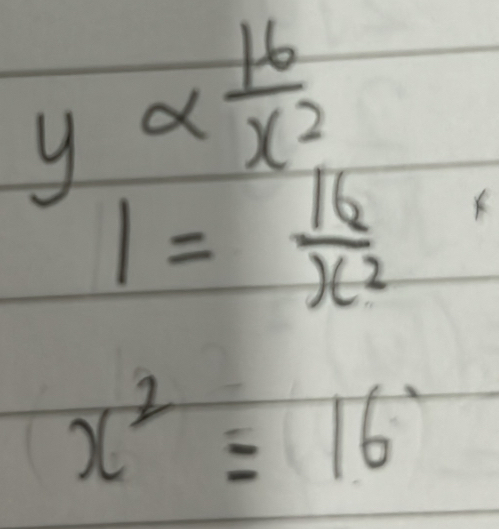 y ∝ 16/x²
1 = 16/x²
x² = 16